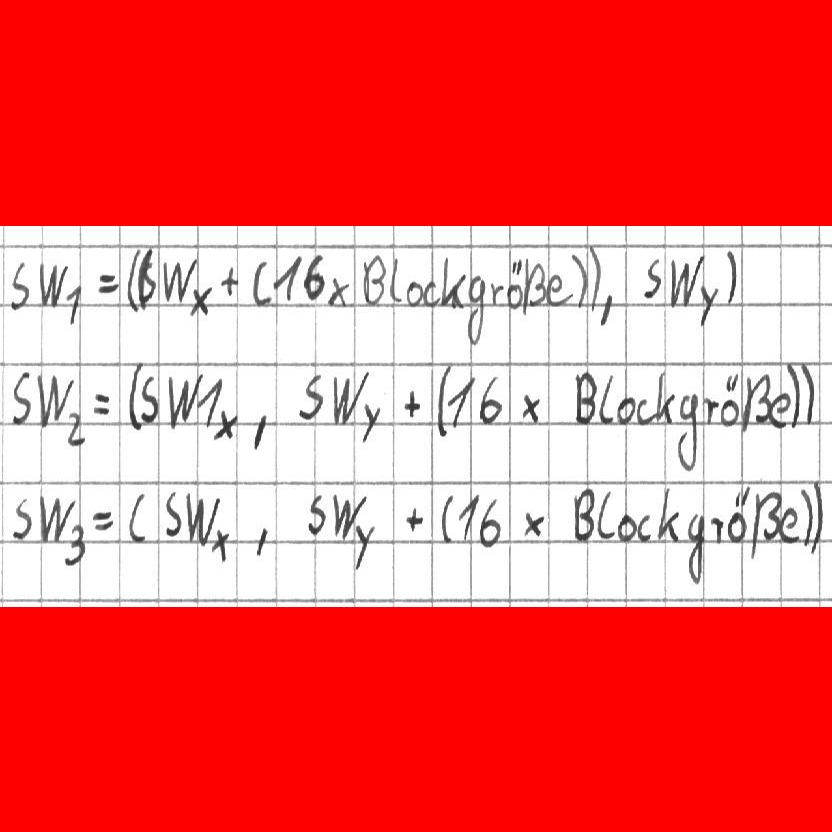 SW₁ = (SWₓ + (16 x Blockgröße)), SWy)
SW₂ = (SW1ₓ, SWy + (16 x Blockgröße))
SW₃ = (SWₓ, SWy + (16 x Blockgröße))